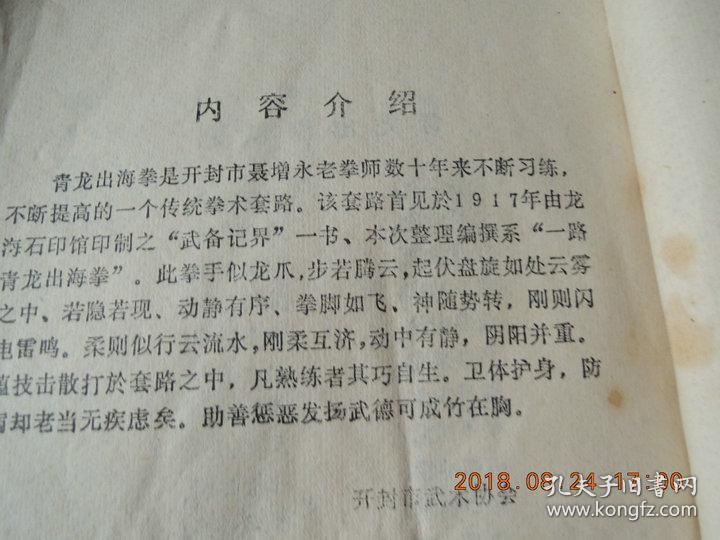 内容介绍
青龙出海拳是开封市聂增永老拳师数十年来不断习练，
不断提高的一个传统拳术套路。该套路首见於1917年由龙
海石印馆印制之“武备记界”一书、本次整理编撰系“一路
青龙出海拳”。此拳手似龙爪，步若腾云，起伏盘旋如处云雾
之中、若隐若现、动静有序、拳脚如飞、神随势转，刚则闪
电雷鸣。柔则似行云流水，刚柔互济，动中有静，阴阳并重。
技击散打於套路之中，凡熟练者其巧自生。卫体护身，防
却老当无疾虑矣。助善惩恶发扬武德可成竹在胸。
开封市武术协会
2018.08.24 17:00
孔夫子旧书网
www.kongfz.com